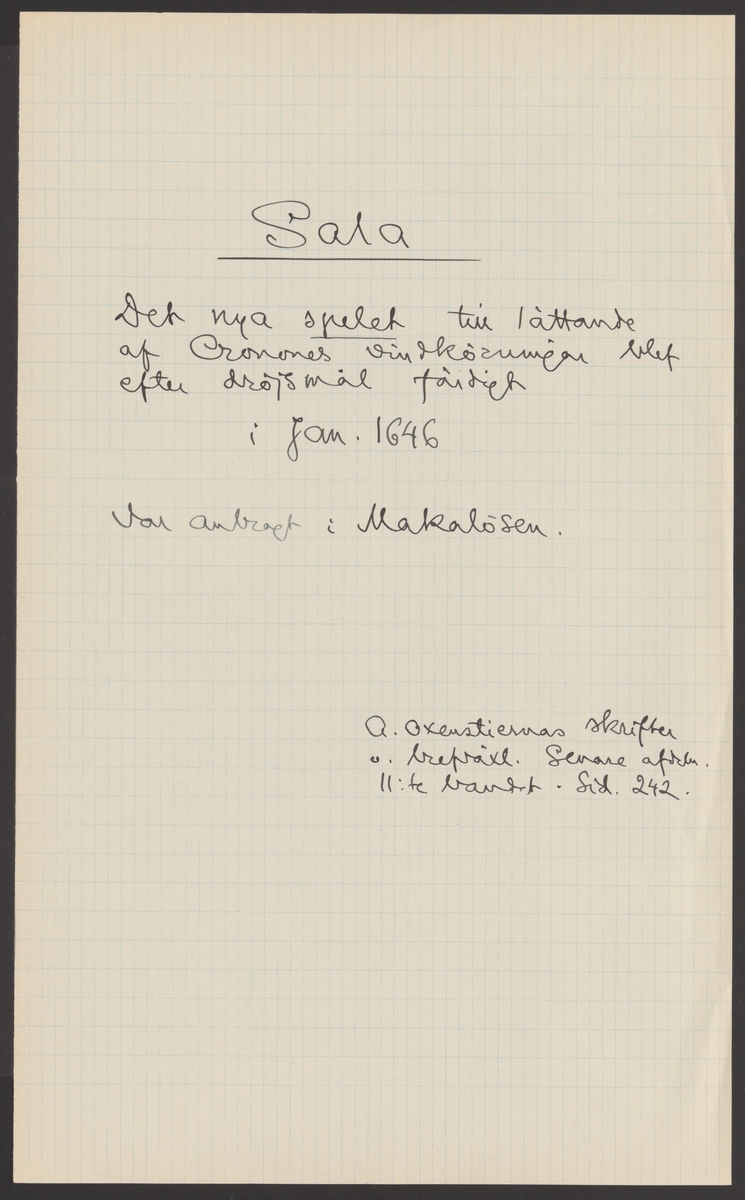 Sala
Det nya spelet till lättande
af Cronones vindkörningar blef
efter dröjsmål färdigt
i Jan. 1646
Var anbragt i Makalösen.
A. Oxenstiernas skrifter
o. brefväxl. Senare afdeln.
11:te bandet. Sid. 242.